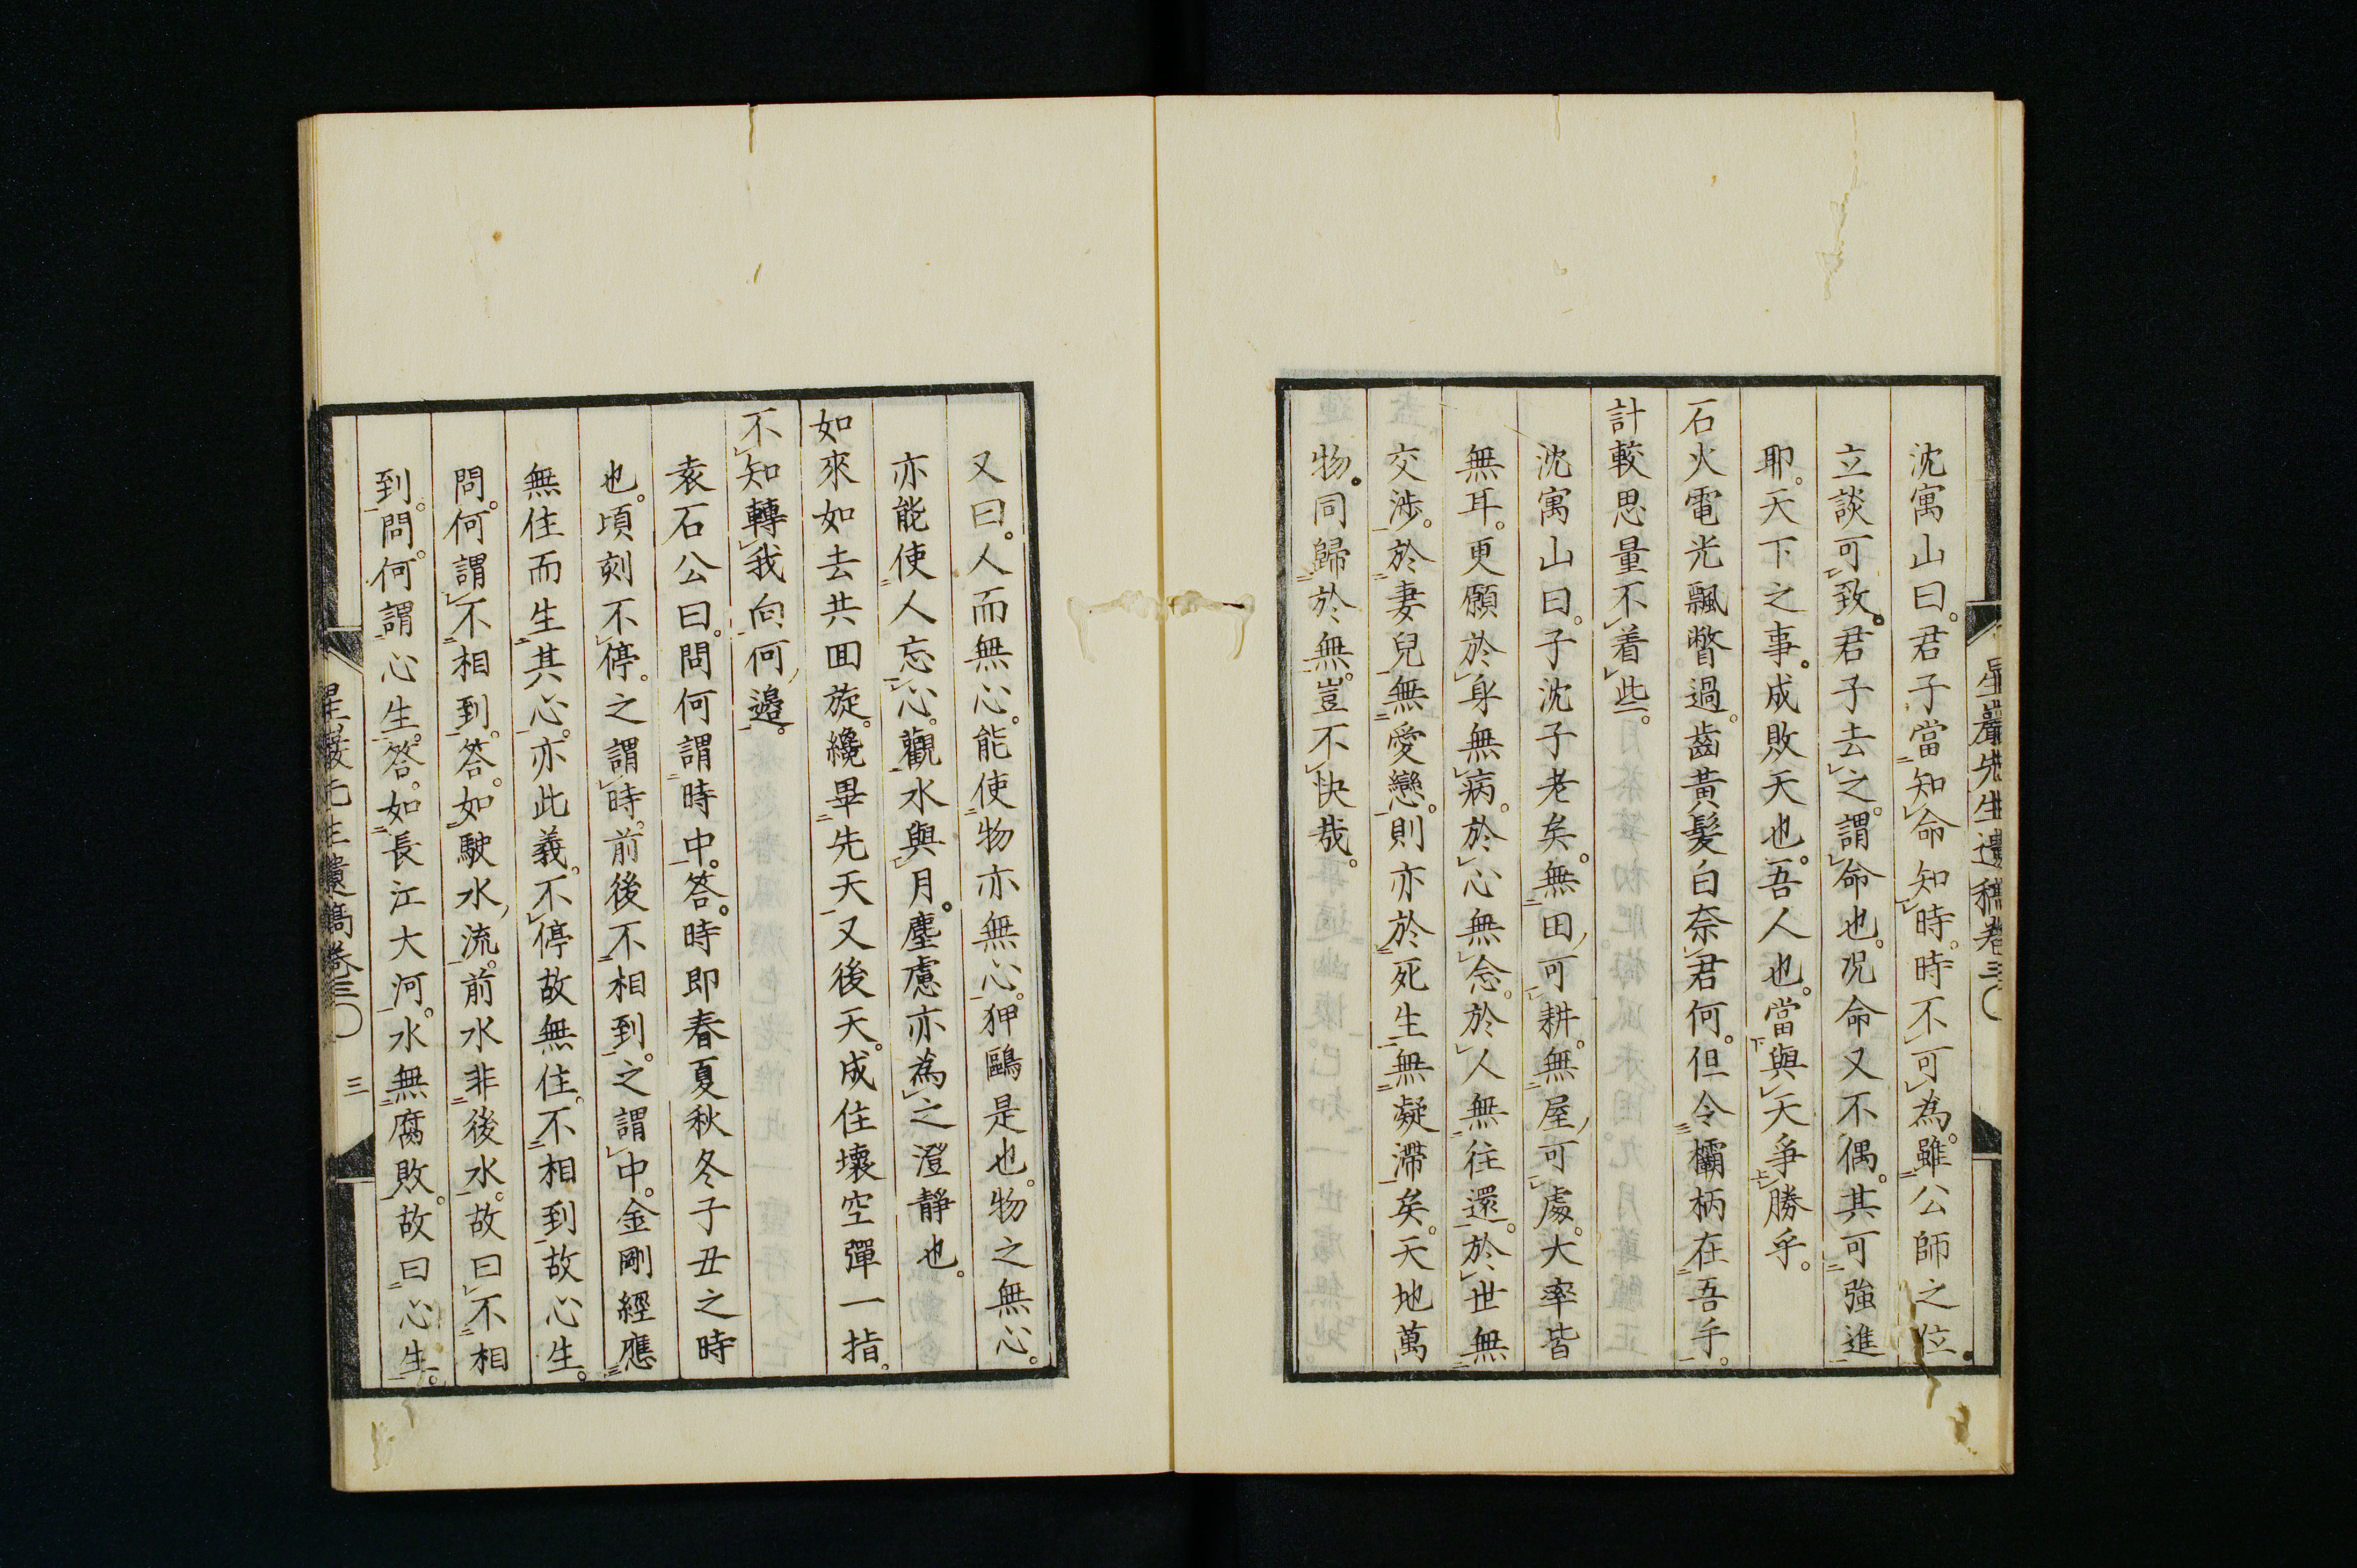 沈寓山曰。君子當知命知時。時不可為。雖公師之位。
立談可致。君子去之。謂命也。况命又不偶。其可強進
耶。天下之事。成敗天也。吾人也。當與天爭勝乎。
石火電光飄瞥過。齒黃髮白奈君何。但令欛柄在吾手。
計較思量不着些。
沈寓山曰。子沈子老矣。無田可耕。無屋可處。大率皆
無耳。更願於身無病。於心無念。於人無往還。於世無
交渉。於妻兒無愛戀。則亦於死生無凝滯矣。天地萬
物。同歸於無。豈不快哉。
又曰。人而無心。能使物亦無心。狎鷗是也。物之無心。
亦能使人忘心。觀水與月。塵慮亦為之澄靜也。
如來如去共囬旋。纔畢先天又後天。成住壞空彈一指。
不知轉我向何邉。
袁石公曰。問何謂時中。答。時即春夏秋冬子丑之時
也。頃刻不停。之謂時。前後不相到。之謂中。金剛經應
無住而生其心。亦此義。不停故無住。不相到故心生。
問。何謂不相到。答。如駛水流。前水非後水。故曰不相
到。問。何謂心生。答。如長江大河。水無腐敗。故曰心生。
星巖先生遺稿卷三〇
三